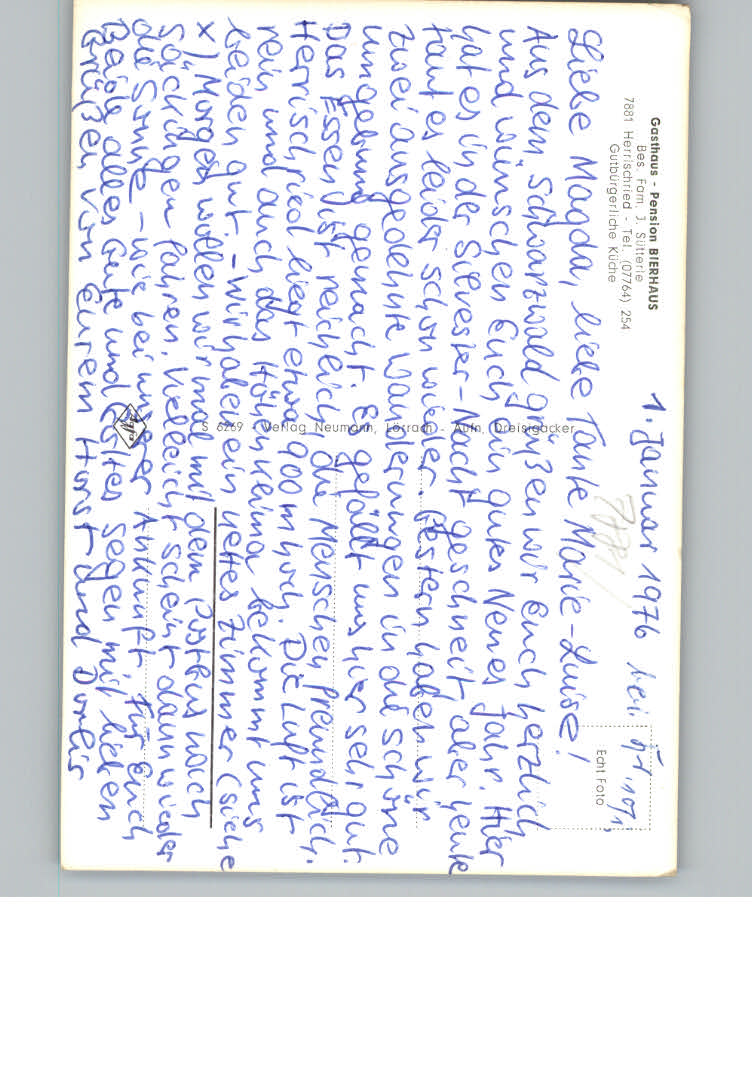 Gasthaus - Pension BIERHAUS
Bes. Fam. J. Sütterle
7881 Herrischried - Tel. (07764) 254
Gutbürgerliche Küche
1. Januar 1976
Echt Foto
Liebe Magda, liebe Tante Marie-Luise!
Aus dem Schwarzwald grüßen wir Euch herzlich
und wünschen Euch ein gutes Neues Jahr. Hier
hat es in der Silvester-Nacht geschneit, aber heute
taut es leider schon wieder. Gestern haben wir
zwei ausgedehnte Wanderungen in die schöne
Umgebung gemacht. Es gefällt uns hier sehr gut.
Das Essen ist reichlich, die Menschen freundlich.
Herrischried liegt etwa 900 m hoch. Die Luft ist
rein und auch das Höhenklima bekommt uns
beiden gut - wir haben ein nettes Zimmer (siehe
x) Morgen wollen wir mal mit dem Postbus nach
Säckingen fahren. Vielleicht scheint dann wieder
die Sonne - wie bei unserer Ankunft. Für Euch
Beide alles Gute und Gottes Segen mit lieben
Grüßen von Eurem Horst und
S 6269 - Verlag Neumann, Lörrach - Aufn. Dreisigacker
Agfa